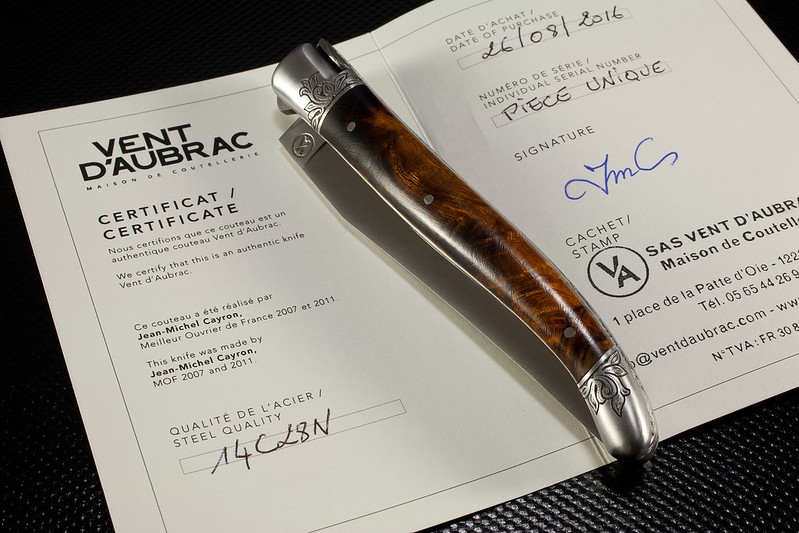 VENT
D'AUBRAC
MAISON DE COUTELLERIE
CERTIFICAT /
CERTIFICATE
Nous certifions que ce couteau est un
authentique couteau Vent d'Aubrac.
We certify that this is an authentic knife
Vent d'Aubrac.
Ce couteau a été réalisé par
Jean-Michel Cayron,
Meilleur Ouvrier de France 2007 et 2011.
This knife was made by
Jean-Michel Cayron,
MOF 2007 and 2011.
QUALITÉ DE L'ACIER /
STEEL QUALITY
14C28N
DATE D'ACHAT /
DATE OF PURCHASE
26/08/2016
NUMÉRO DE SÉRIE /
INDIVIDUAL SERIAL NUMBER
PIECE UNIQUE
SIGNATURE
CACHET/
STAMP
VA
SAS VENT D'AUBRA
Maison de Coutell
1 place de la Patte d'Oie - 122
Tél. 05 65 44 26 9
o@ventdaubrac.com - www
N° TVA : FR 30 8